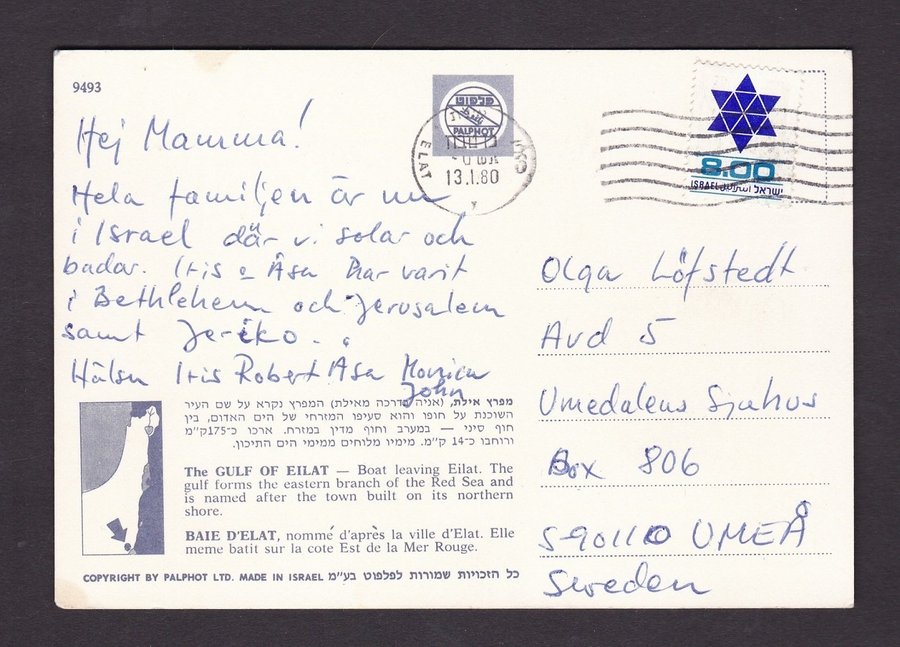 9493
פלפוט
PALPHOT
ELAT
13.1.80
8.00
ISRAEL اسرائيل ישראל
Hej Mamma!
Hela familjen är nu
i Israel där vi solar och
badar. Iris o Åsa har varit
i Bethlehem och Jerusalem
samt Jeriko.
Hälsn Iris Robert Åsa Monica
John
Olga Löfstedt
Avd 5
Umedalens Sjukhus
Box 806
S-90110 UMEÅ
Sweden
מפרץ אילת, (אניה בדרכה מאילת) המפרץ נקרא על שם העיר
השוכנת על חופו והוא סעיפו המזרחי של הים האדום, בין
חוף סיני — במערב וחוף מדין במזרח. ארכו כ־175ק״מ
ורוחבו כ־14 ק״מ. מימיו מלוחים ממימי הים התיכון.
The GULF OF EILAT — Boat leaving Eilat. The
gulf forms the eastern branch of the Red Sea and
is named after the town built on its northern
shore.
BAIE D'ELAT, nommé d'après la ville d'Elat. Elle
meme batit sur la cote Est de la Mer Rouge.
COPYRIGHT BY PALPHOT LTD. MADE IN ISRAEL כל הזכויות שמורות לפלפוט בע״מ